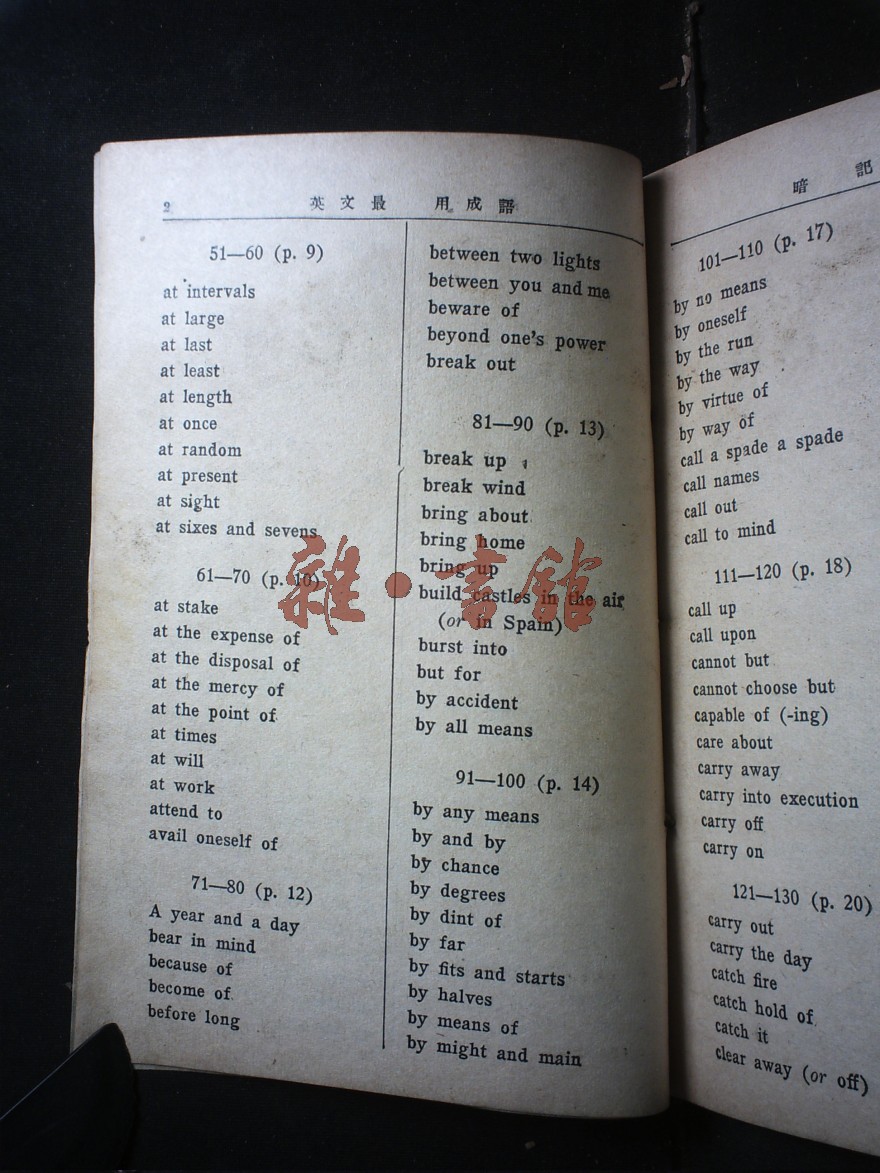 2
英文最 用成語
51—60 (p. 9)
at intervals
at large
at last
at least
at length
at once
at random
at present
at sight
at sixes and sevens
61—70 (p. 10)
at stake
at the expense of
at the disposal of
at the mercy of
at the point of
at times
at will
at work
attend to
avail oneself of
71—80 (p. 12)
A year and a day
bear in mind
because of
become of
before long
between two lights
between you and me
beware of
beyond one's power
break out
81—90 (p. 13)
break up
break wind
bring about
bring home
bring up
build castles in the air
(or in Spain)
burst into
but for
by accident
by all means
91—100 (p. 14)
by any means
by and by
by chance
by degrees
by dint of
by far
by fits and starts
by halves
by means of
by might and main
雜·書館
暗記
101—110 (p. 17)
by no means
by oneself
by the run
by the way
by virtue of
by way of
call a spade a spade
call names
call out
call to mind
111—120 (p. 18)
call up
call upon
cannot but
cannot choose but
capable of (-ing)
care about
carry away
carry into execution
carry off
carry on
121—130 (p. 20)
carry out
carry the day
catch fire
catch hold of
catch it
clear away (or off)